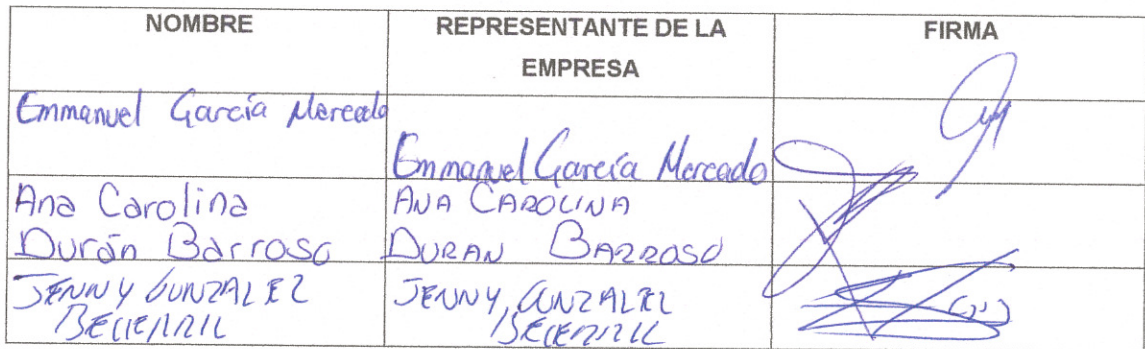 NOMBRE
REPRESENTANTE DE LA
EMPRESA
FIRMA
Emmanuel García Mercado
Emmanuel García Mercado
Ana Carolina
Durán Barroso
ANA CAROLINA
DURAN BARROSO
JENNY GONZALEZ
BECERRIL
JENNY GONZALEZ
BECERRIL